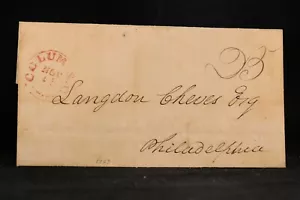 COLUM
NOV
25
Langdon Cheves Esq
Philadelphia